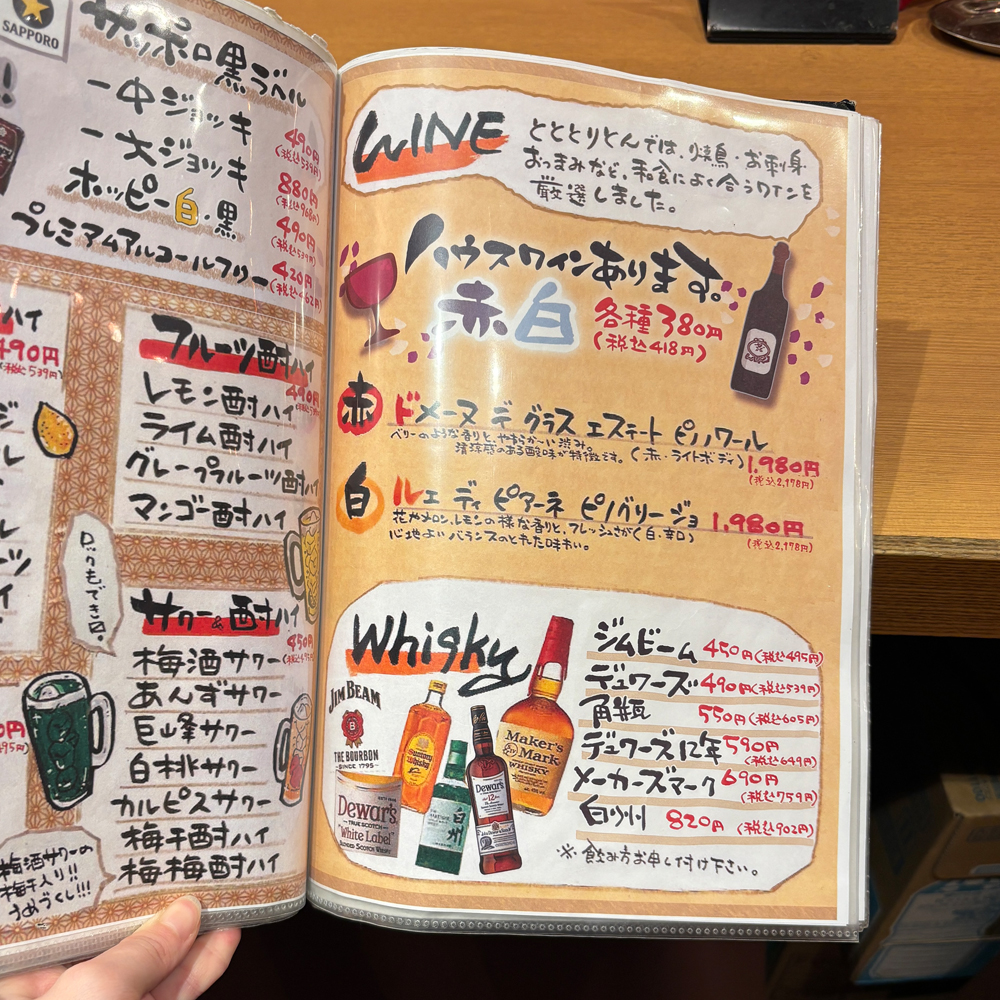 SAPPORO
サッポロ黒ラベル
一中ジョッキ
490円
(税込539円)
一大ジョッキ
880円
(税込968円)
ホッピー白・黒
490円
(税込539円)
プレミアムアルコールフリー
420円
(税込462円)
ハイ
490円
(税込539円)
フルーツ酎ハイ
490円
レモン酎ハイ
ライム酎ハイ
グレープフルーツ酎ハイ
マンゴー酎ハイ
ロックもできます。
サワー&酎ハイ
450円
梅酒サワー
あんずサワー
巨峰サワー
白桃サワー
カルピスサワー
梅干酎ハイ
梅梅酎ハイ
梅酒サワーの
梅干入り!!
うめづくし!!!
WINE
とととりとんでは、焼鳥・お刺身
おつまみなど、和食によく合うワインを
厳選しました。
ハウスワインあります。
赤 白 各種380円
(税込418円)
赤 ドメーヌ デ グラス エステート ピノノワール
ベリーのような香りと、やわらか〜い渋み。
清涼感のある酸味が特徴です。(赤・ライトボディ) 1,980円
(税込2,178円)
白 ルェ ディ ピアーネ ピノグリージョ 1,980円
花やメロン、レモンの様な香りと、フレッシュさが(白・辛口)
(税込2,178円)
心地よいバランスのとれた味わい。
Whisky
ジムビーム 450円(税込495円)
デュワーズ 490円(税込539円)
角瓶 550円(税込605円)
デュワーズ12年 590円
(税込649円)
メーカーズマーク 690円
(税込759円)
白州 820円(税込902円)
※飲み方お申し付け下さい。
JIM BEAM
B
THE BOURBON
SINCE 1795
Dewar's
TRUE SCOTCH
"White Label"
BLENDED SCOTCH WHISKY
Suntory
Whisky
白州
Dewar's
12
Maker's
Mark
WHISKY